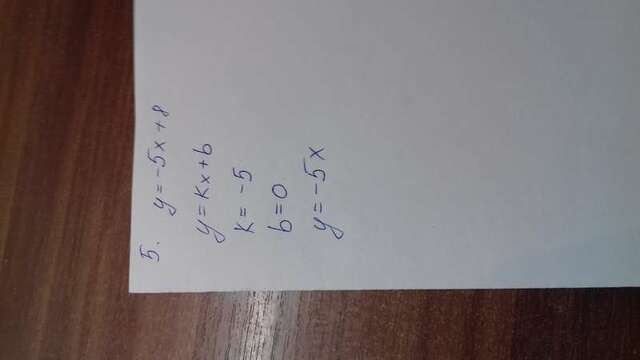 5. y=-5x+8
y=kx+b
k=-5
b=0
y=-5x